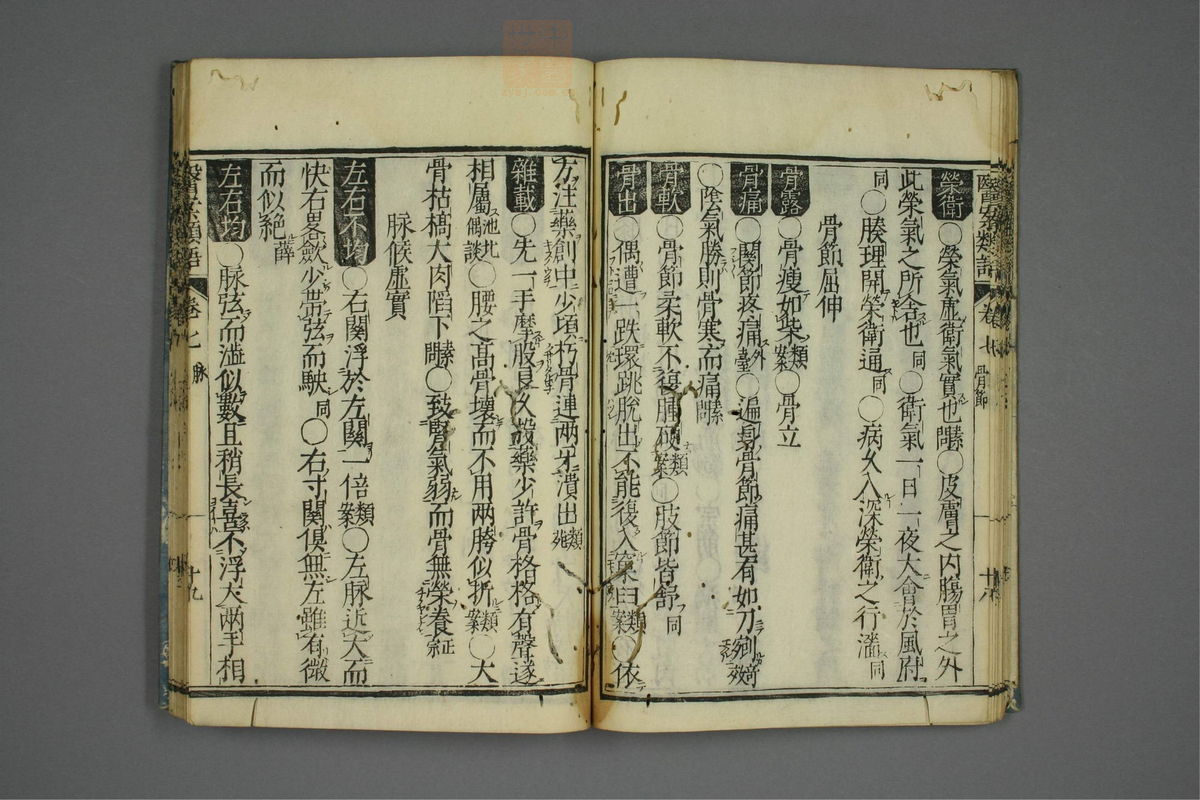 醫案類語 卷七 骨節 十八
榮衛 ○榮氣虛衛氣實也 素問 ○皮膚之內腸胃之外
此榮氣之所舍也 同 ○衛氣一日一夜大會於風府
同 ○腠理開榮衛通 同 ○病久入深榮衛之行濇 同
骨節屈伸
骨露 ○骨瘦如柴 類案 ○骨立
骨痛 ○關節疼痛 外臺 ○遍身骨節痛甚有如刀剜 奇效
○陰氣勝則骨寒而痛 素問
骨軟 ○骨節柔軟不復腫硬 類案 ○肢節皆舒 同
骨出 ○偶遭一跌環跳脫出不能復入窠臼 類案 ○依
方注藥創中少頃朽骨連兩牙潰出 類苑
雜載 ○先一手摩股良久設藥少許骨格格有聲遂
相屬 池北偶談 ○腰之高骨壞而不用兩胯似折 類案 ○大
骨枯槁大肉陷下 素問 ○致腎氣弱而骨無榮養 正宗
脉候虛實
左右不均 ○右關浮於左關一倍 類案 ○左脉近大而
快右畧歛少帶弦而駃 同 ○右寸關俱無左雖有微
而似絕 薛
左右均 ○脉弦而濇似數且稍長喜不浮大兩手相
醫案類語 卷七 脉 十九